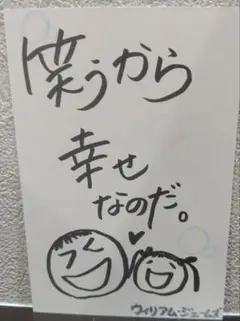 笑うから
幸せ
なのだ。
ウィリアム・ジェームズ